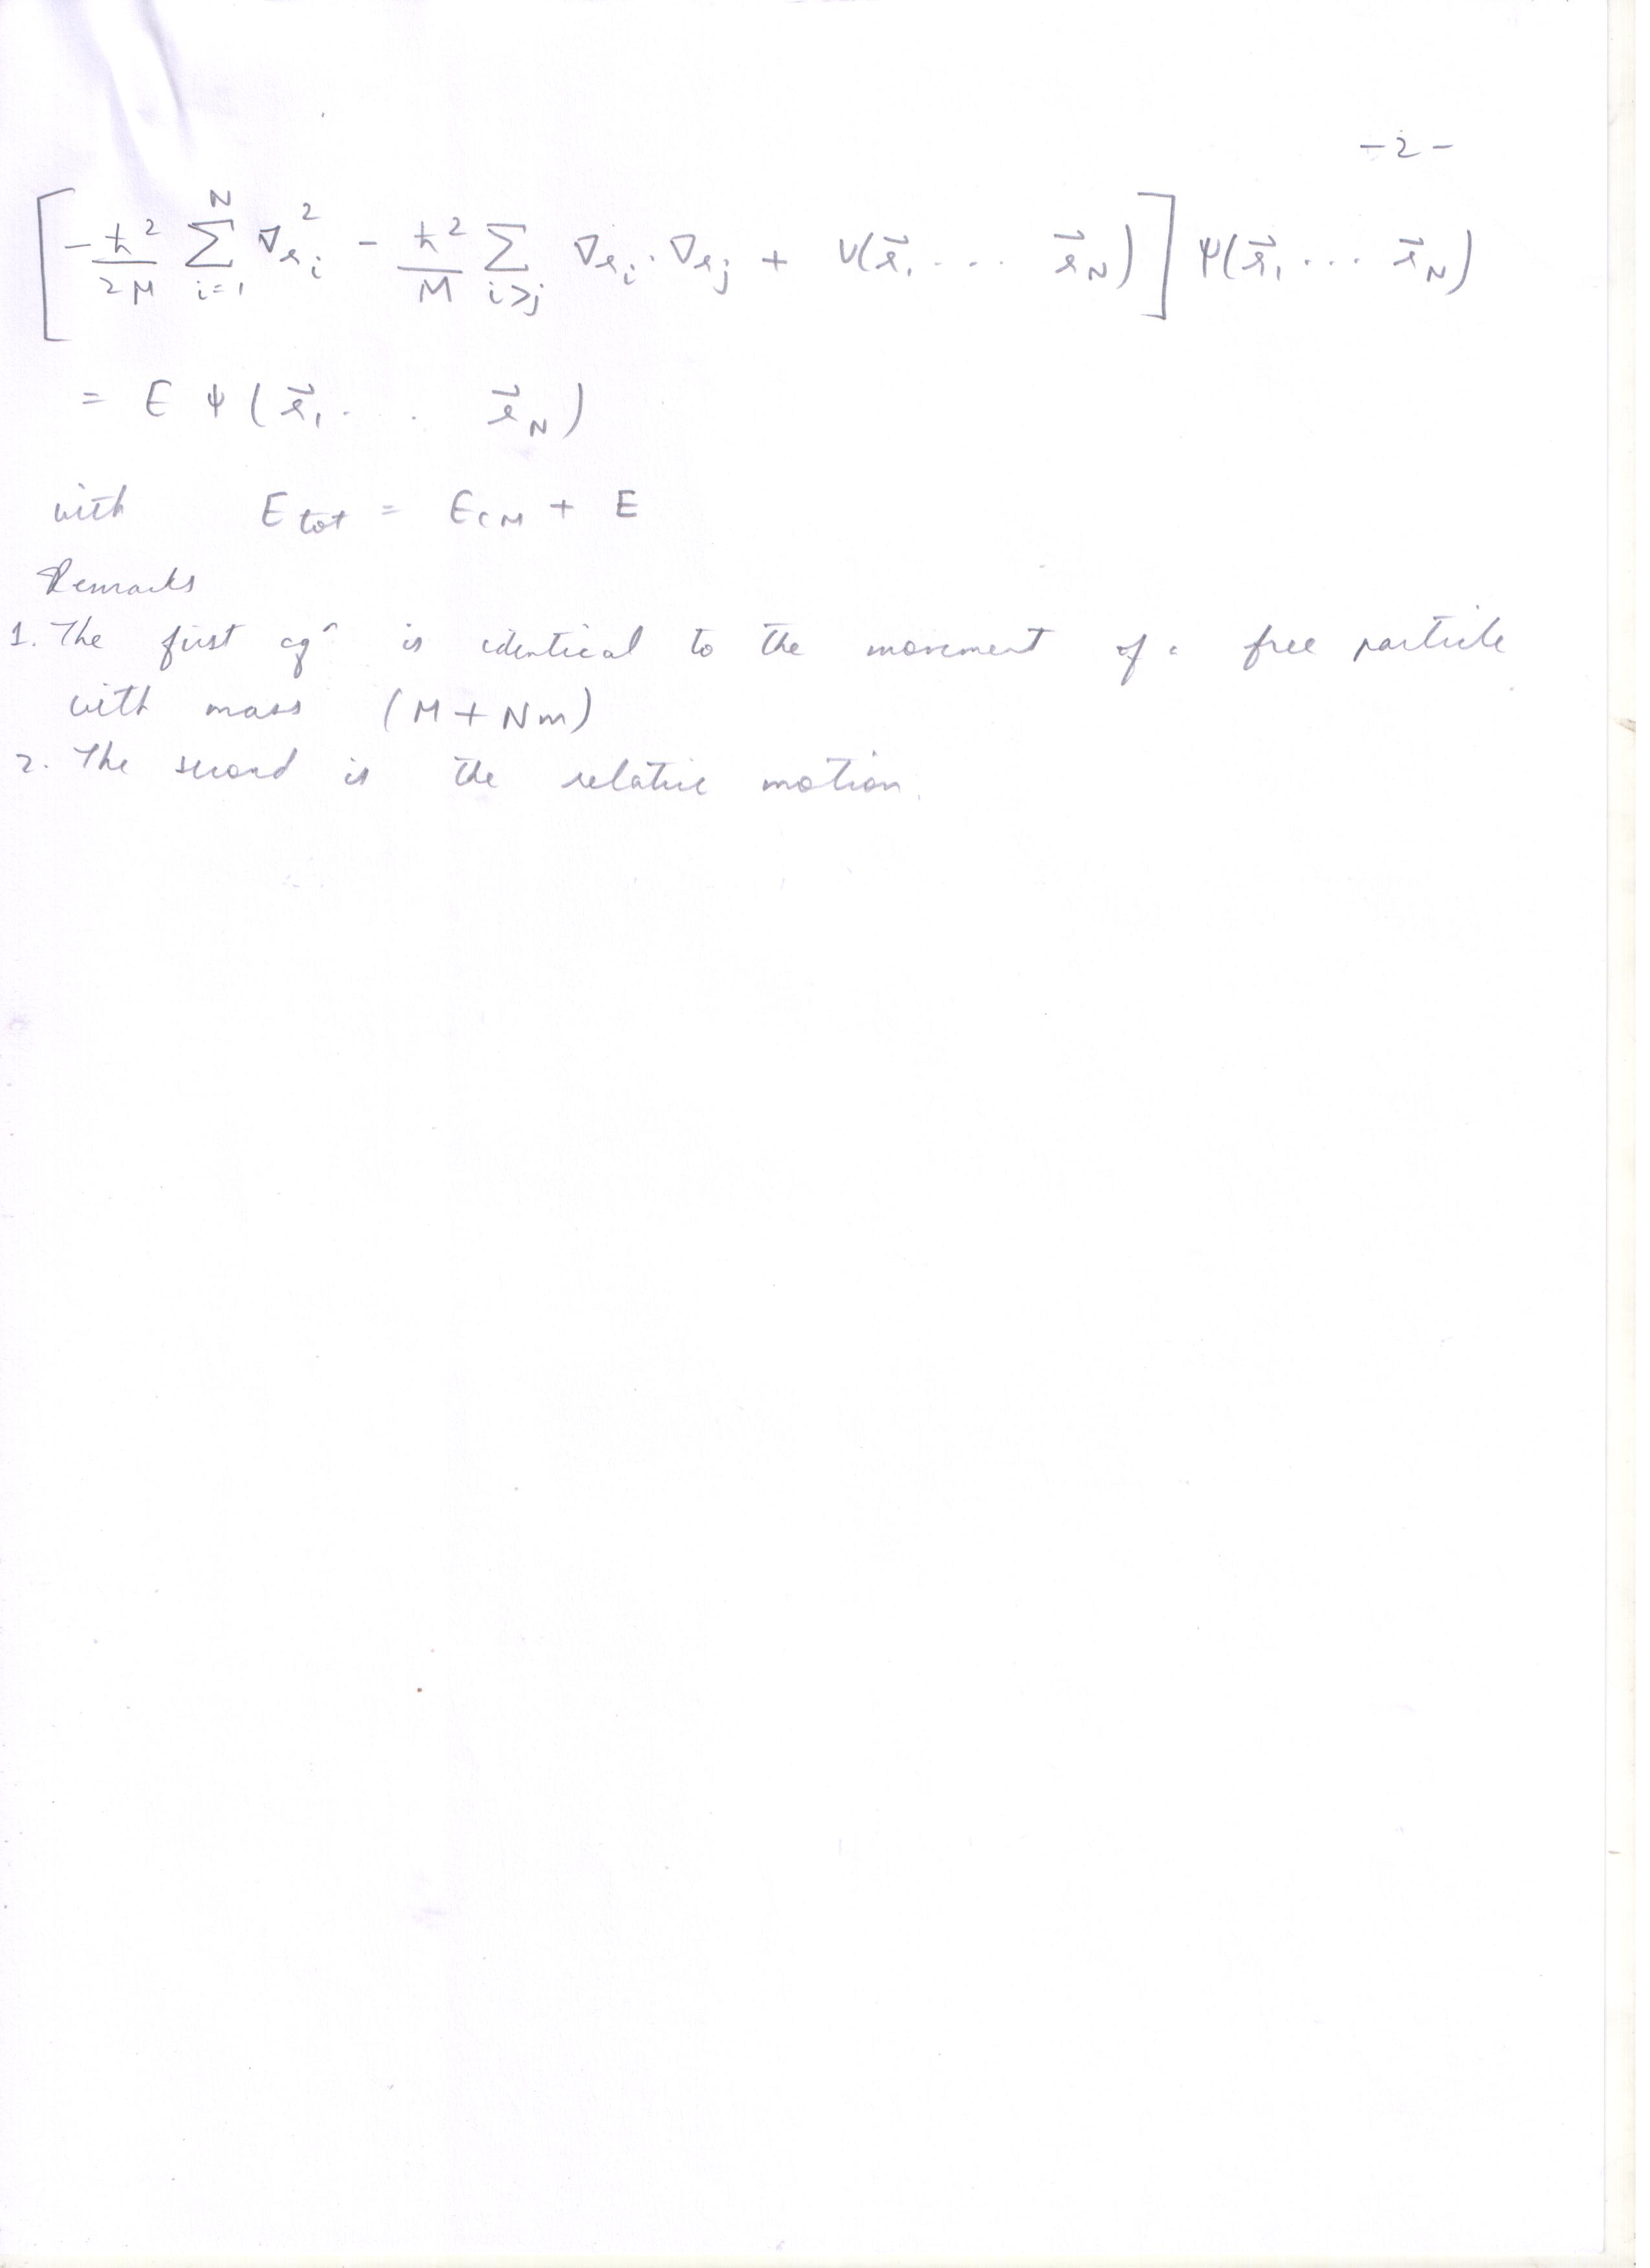 -2-
[ -ħ²/2M Σ_{i=1}^{N} ∇²_{r_i} - ħ²/M Σ_{i>j} ∇_{r_i} · ∇_{r_j} + V(r⃗₁ .... r⃗_N) ] Ψ(r⃗₁ .... r⃗_N)
= E ψ(r⃗₁ . . r⃗_N)
with E_tot = E_CM + E
Remarks
1. The first eqⁿ is identical to the movement of a free particle
with mass (M + Nm)
2. The second is the relative motion.